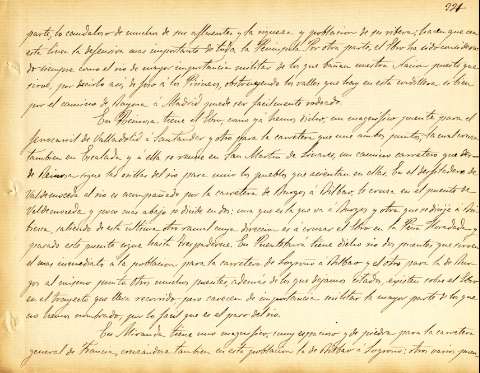 221
parte, lo caudaloso de muchos de sus afluentes y la riqueza y poblacion de su ribera; hacen que sea
esta linea la defensiva mas importante de toda la Peninsula. Por otra parte, el Ebro ha sido considera-
do siempre como el rio de mayor importancia militar de los que bañan nuestra Nacion puesto que
sirve, por decirlo asi, de foso á los Pirineos, obstruyendo los valles que hay en esta cordillera, si bien
por el camino de Bayona á Madrid puede ser facilmente rodeado.
En Reinosa tiene el Ebro, como ya hemos dicho, un magnifico puente para el
ferrocarril de Valladolid á Santander y otro para la carretera que une ambos puntos; la cual cruza
tambien en Escalada y á ella se reune en San Martin de Linares, un camino carretero que des-
de Reinosa sigue las orillas del rio para unir los pueblos que asientan en ellas. En el desfiladero de
Valdenoceda el rio es acompañado por la carretera de Burgos á Bilbao, le cruza en el puente de
Valdenoceda y poco mas abajo se divide en dos: una que es la que va á Burgos y otra que se dirije á
saliendo de esta última, otro ramal cuya direccion es a cruzar el Ebro en la Peña Horadada y
pasado este puente sigue hasta Trespaderne. En Puentelarrá tiene dicho rio dos puentes que sirven
el mas inmediato á la poblacion para la carretera de Logroño á Bilbao y el otro para la de Bur-
gos al mismo punto. Otros muchos puentes, además de los que dejamos citados, existen sobre el Ebro
en el trayecto que lleva recorrido pero carecen de importancia militar la mayor parte de los que
no hemos nombrado, por lo facil que es el paso del rio.
En Miranda tiene uno magnifico, muy espacioso y de piedra para la carretera
general de Francia, cruzandose tambien en esta poblacion la de Bilbao á Logroño: otros varios puen-